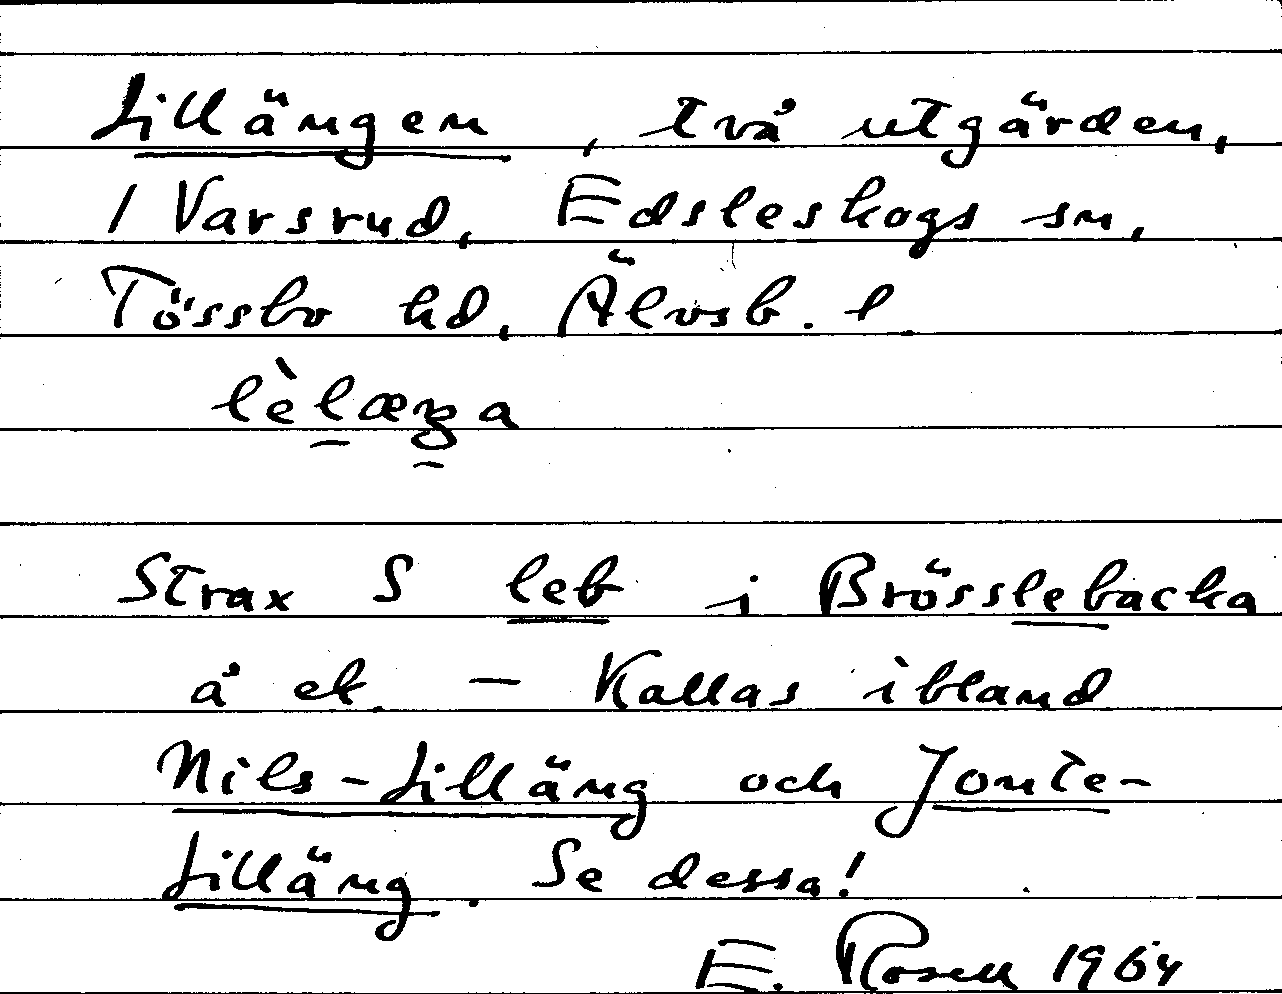 Lillängen, två utgården,
1 Varsrud, Edsleskogs sn,
Tössbo hd, Älvsb. l
Strax S leb i Brösslebacka
å ek. – Kallas ibland
Nils-Lilläng och Jonte-
Lilläng. Se dessa!
E. Rosell 1964